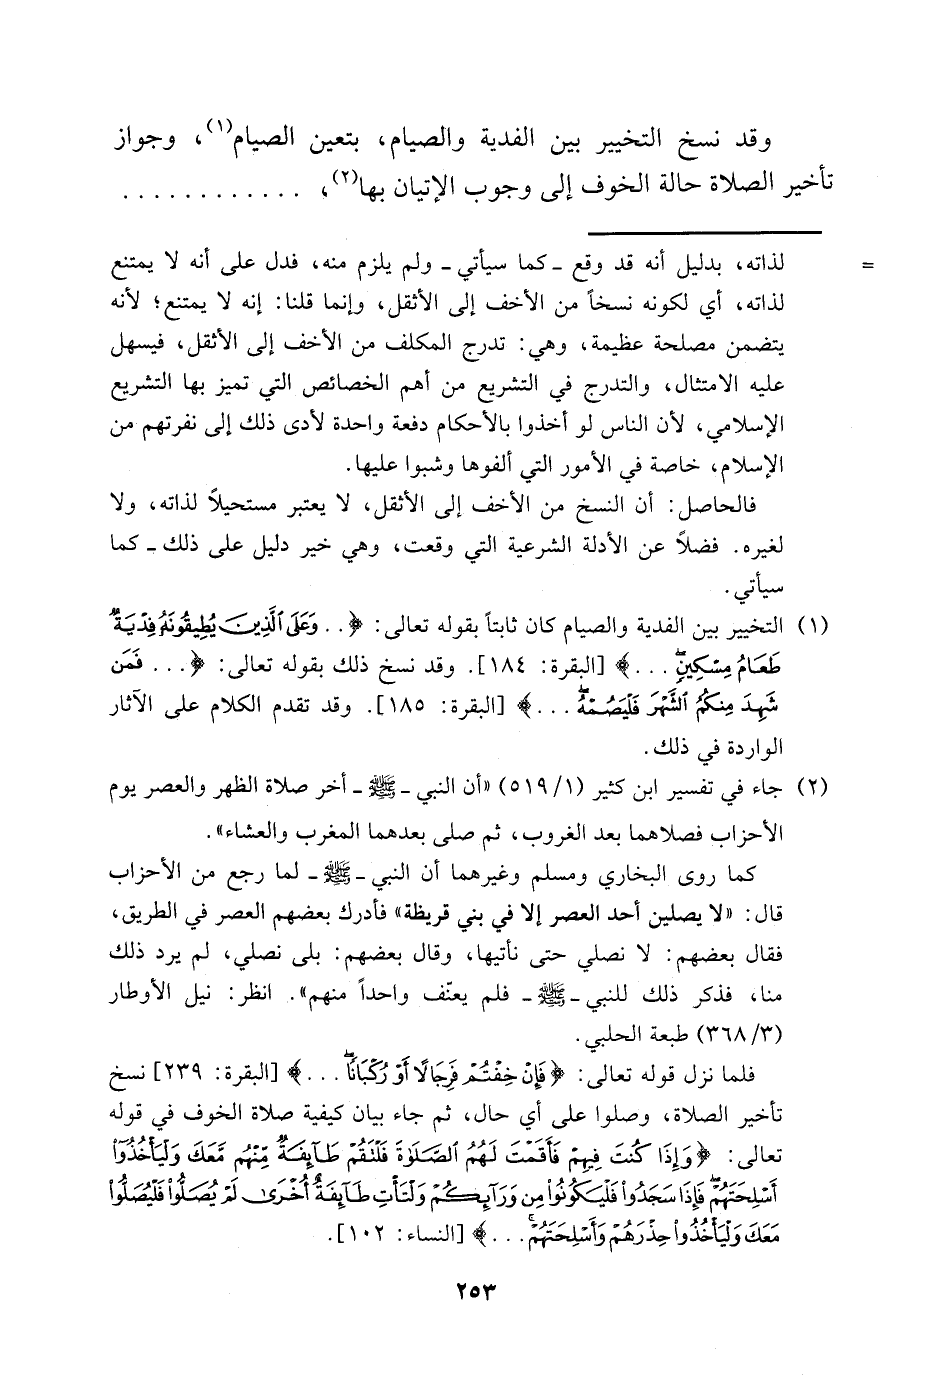 وقد نسخ التخيير بين الفدية والصيام، بتعين الصيام(١)، وجواز
تأخير الصلاة حالة الخوف إلى وجوب الإتيان بها(٢)، . . . . . . . . . . . .
= لذاته، بدليل أنه قد وقع ـ كما سيأتي ـ ولم يلزم منه، فدل على أنه لا يمتنع
لذاته، أي لكونه نسخاً من الأخف إلى الأثقل، وإنما قلنا: إنه لا يمتنع؛ لأنه
يتضمن مصلحة عظيمة، وهي: تدرج المكلف من الأخف إلى الأثقل، فيسهل
عليه الامتثال، والتدرج في التشريع من أهم الخصائص التي تميز بها التشريع
الإسلامي، لأن الناس لو أخذوا بالأحكام دفعة واحدة لأدى ذلك إلى نفرتهم من
الإسلام، خاصة في الأمور التي ألفوها وشبوا عليها.
فالحاصل: أن النسخ من الأخف إلى الأثقل، لا يعتبر مستحيلاً لذاته، ولا
لغيره. فضلاً عن الأدلة الشرعية التي وقعت، وهي خير دليل على ذلك ـ كما
سيأتي.
(١) التخيير بين الفدية والصيام كان ثابتاً بقوله تعالى: ﴿. . وَعَلَى ٱلَّذِينَ يُطِيقُونَهُۥ فِدْيَةٌ
طَعَامُ مِسْكِينٍۖ . . .﴾ [البقرة: ١٨٤]. وقد نسخ ذلك بقوله تعالى: ﴿. . . فَمَن
شَهِدَ مِنكُمُ ٱلشَّهْرَ فَلْيَصُمْهُۖ . . .﴾ [البقرة: ١٨٥]. وقد تقدم الكلام على الآثار
الواردة في ذلك.
(٢) جاء في تفسير ابن كثير (١/ ٥١٩) «أن النبي ـ ﷺ ـ أخر صلاة الظهر والعصر يوم
الأحزاب فصلاهما بعد الغروب، ثم صلى بعدهما المغرب والعشاء».
كما روى البخاري ومسلم وغيرهما أن النبي ـ ﷺ ـ لما رجع من الأحزاب
قال: «لا يصلين أحد العصر إلا في بني قريظة» فأدرك بعضهم العصر في الطريق،
فقال بعضهم: لا نصلي حتى نأتيها، وقال بعضهم: بلى نصلي، لم يرد ذلك
منا، فذكر ذلك للنبي ـ ﷺ ـ فلم يعنّف واحداً منهم». انظر: نيل الأوطار
(٣/ ٣٦٨) طبعة الحلبي.
فلما نزل قوله تعالى: ﴿فَإِنْ خِفْتُمْ فَرِجَالًا أَوْ رُكْبَانًاۖ . . .﴾ [البقرة: ٢٣٩] نسخ
تأخير الصلاة، وصلوا على أي حال، ثم جاء بيان كيفية صلاة الخوف في قوله
تعالى: ﴿وَإِذَا كُنتَ فِيهِمْ فَأَقَمْتَ لَهُمُ ٱلصَّلَوٰةَ فَلْتَقُمْ طَآئِفَةٌ مِّنْهُم مَّعَكَ وَلْيَأْخُذُوٓاْ
أَسْلِحَتَهُمْۖ فَإِذَا سَجَدُواْ فَلْيَكُونُواْ مِن وَرَآئِكُمْ وَلْتَأْتِ طَآئِفَةٌ أُخْرَىٰ لَمْ يُصَلُّواْ فَلْيُصَلُّواْ
مَعَكَ وَلْيَأْخُذُواْ حِذْرَهُمْ وَأَسْلِحَتَهُمْۗ . . .﴾ [النساء: ١٠٢].
٢٥٣